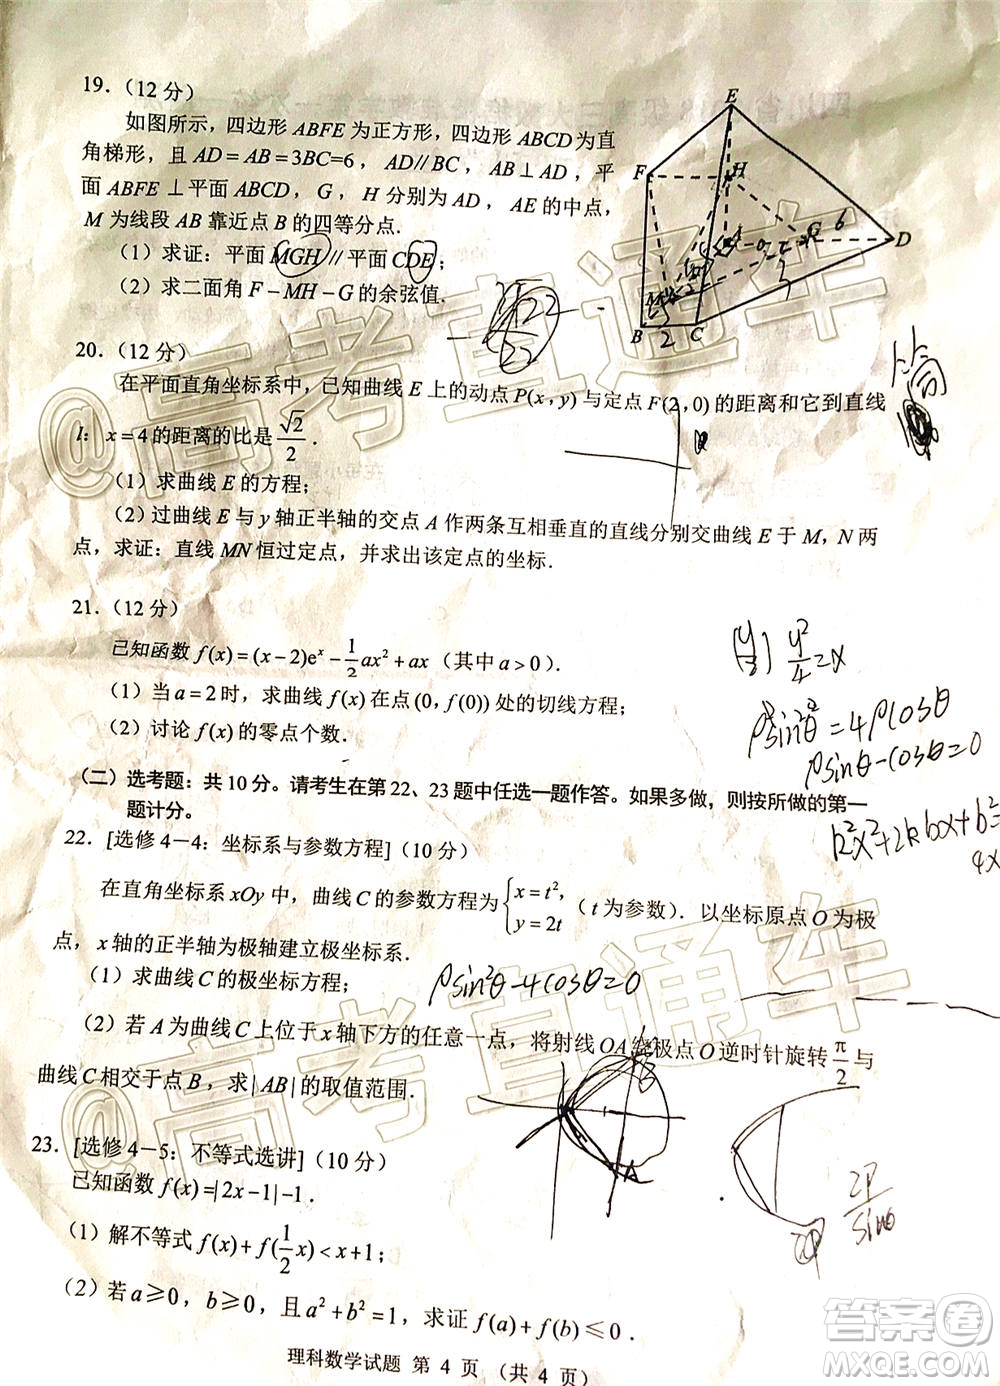 19.(12分)
如图所示,四边形ABFE为正方形,四边形ABCD为直
角梯形,且AD=AB=3BC=6,AD//BC,AB⊥AD,平
面ABFE⊥平面ABCD,G,H分别为AD,AE的中点,
M为线段AB靠近点B的四等分点.
(1)求证:平面MGH//平面CDE;
(2)求二面角F-MH-G的余弦值.
E
F
H
G 6
D
B 2 C
20.(12分)
在平面直角坐标系中,已知曲线E上的动点P(x,y)与定点F(2,0)的距离和它到直线
l:x=4的距离的比是√2/2.
(1)求曲线E的方程;
(2)过曲线E与y轴正半轴的交点A作两条互相垂直的直线分别交曲线E于M,N两
点,求证:直线MN恒过定点,并求出该定点的坐标.
21.(12分)
已知函数f(x)=(x-2)eˣ-1/2ax²+ax(其中a>0).
(1)当a=2时,求曲线f(x)在点(0,f(0))处的切线方程;
(2)讨论f(x)的零点个数.
y²/4=x
ρsin²θ=4ρcosθ
ρsinθ-cosθ=0
(二)选考题:共10分。请考生在第22、23题中任选一题作答。如果多做,则按所做的第一
题计分。
k²x²+2kbx+b²=
4x
22.[选修4-4:坐标系与参数方程](10分)
在直角坐标系xOy中,曲线C的参数方程为{x=t²,y=2t(t为参数).以坐标原点O为极
点,x轴的正半轴为极轴建立极坐标系.
(1)求曲线C的极坐标方程;
ρsin²θ-4cosθ=0
(2)若A为曲线C上位于x轴下方的任意一点,将射线OA绕极点O逆时针旋转π/2与
曲线C相交于点B,求|AB|的取值范围.
A
2P/sinθ
23.[选修4-5:不等式选讲](10分)
已知函数f(x)=|2x-1|-1.
(1)解不等式f(x)+f(1/2x)<x+1;
(2)若a⩾0,b⩾0,且a²+b²=1,求证f(a)+f(b)⩽0.
理科数学试题 第4页(共4页)
@高考直通车
@高考直通车
答案圈
MXQE.COM